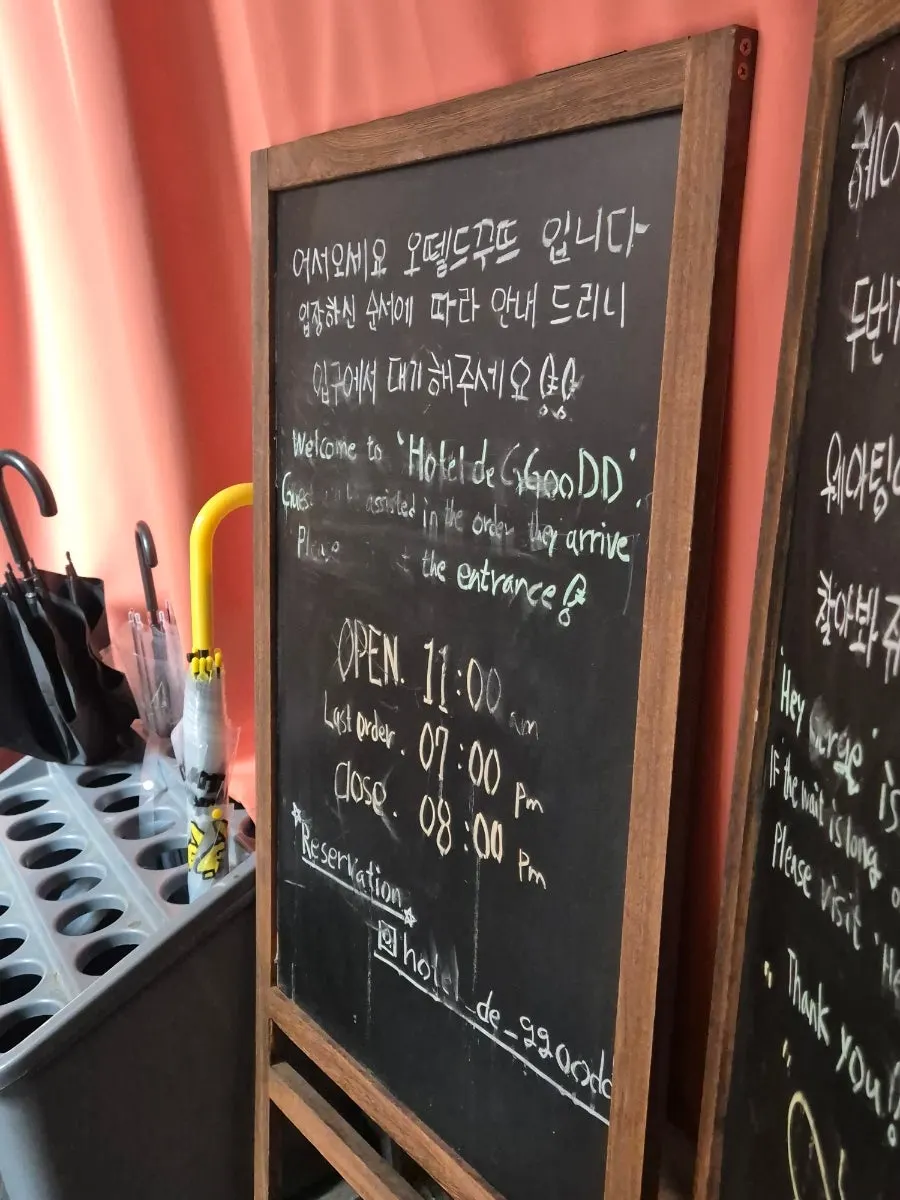 어서오세요 오뗄드꾸뜨 입니다
입장하신 순서에 따라 안내 드리니
입구에서 대기해주세요
Welcome to 'Hotel de GGooDD'.
assisted in the order they arrive
the entrance
OPEN. 11:00 am
Last order. 07:00 pm
Close. 08:00 pm
Reservation
hotel_de_ggoodd
두번
웨이팅
찾아봐주
"Hey
If the wait is long
Please visit
Thank you